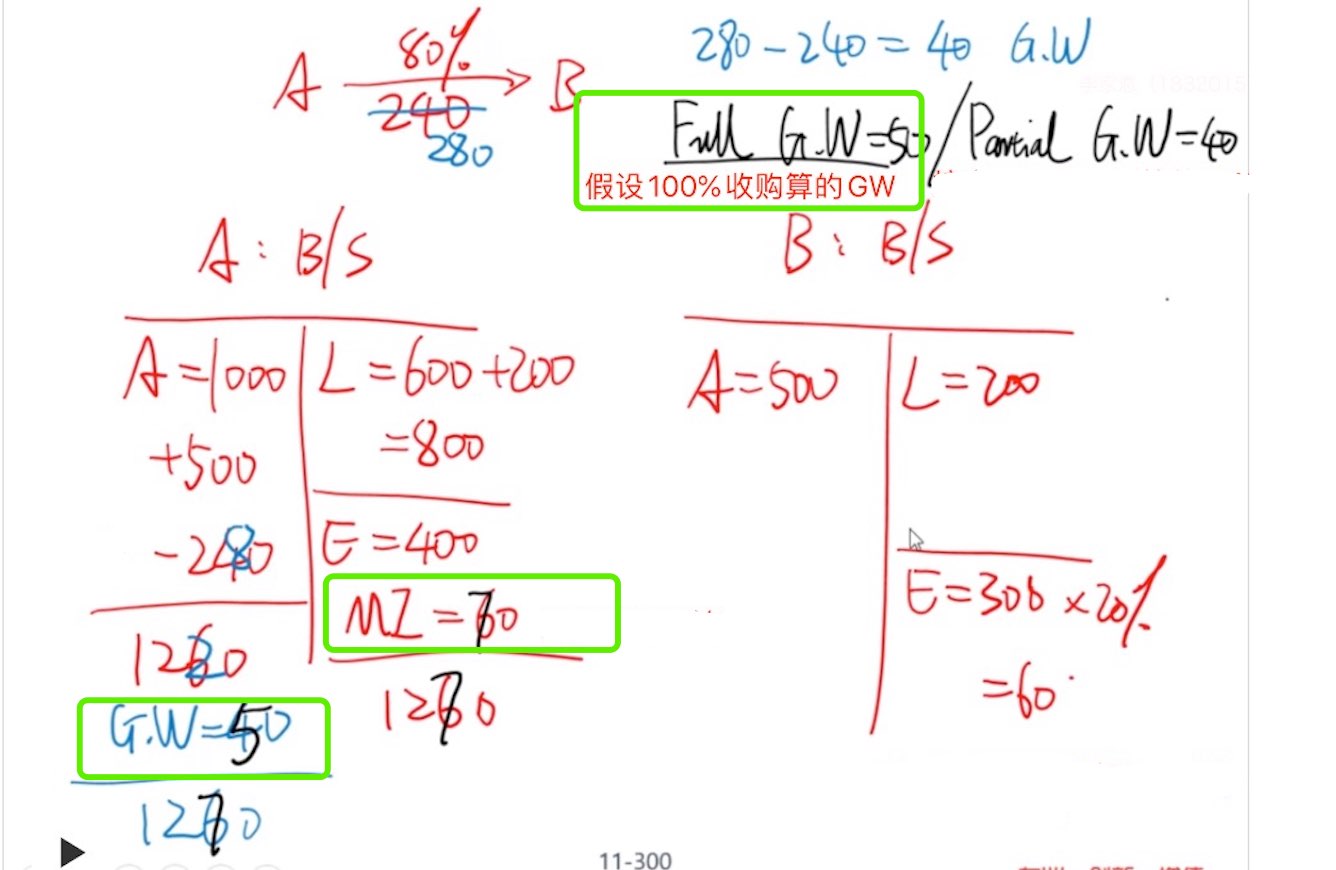 A 80% B
240
280
280 - 240 = 40 G.W
Full G.W=50 / Partial G.W=40
假设100%收购算的GW
A: B/S
A=1000
+500
-280
1220
G.W=50
1270
L=600+200
=800
E=400
MI=70
1270
B: B/S
A=500
L=200
E=300×20%
=60
11-300